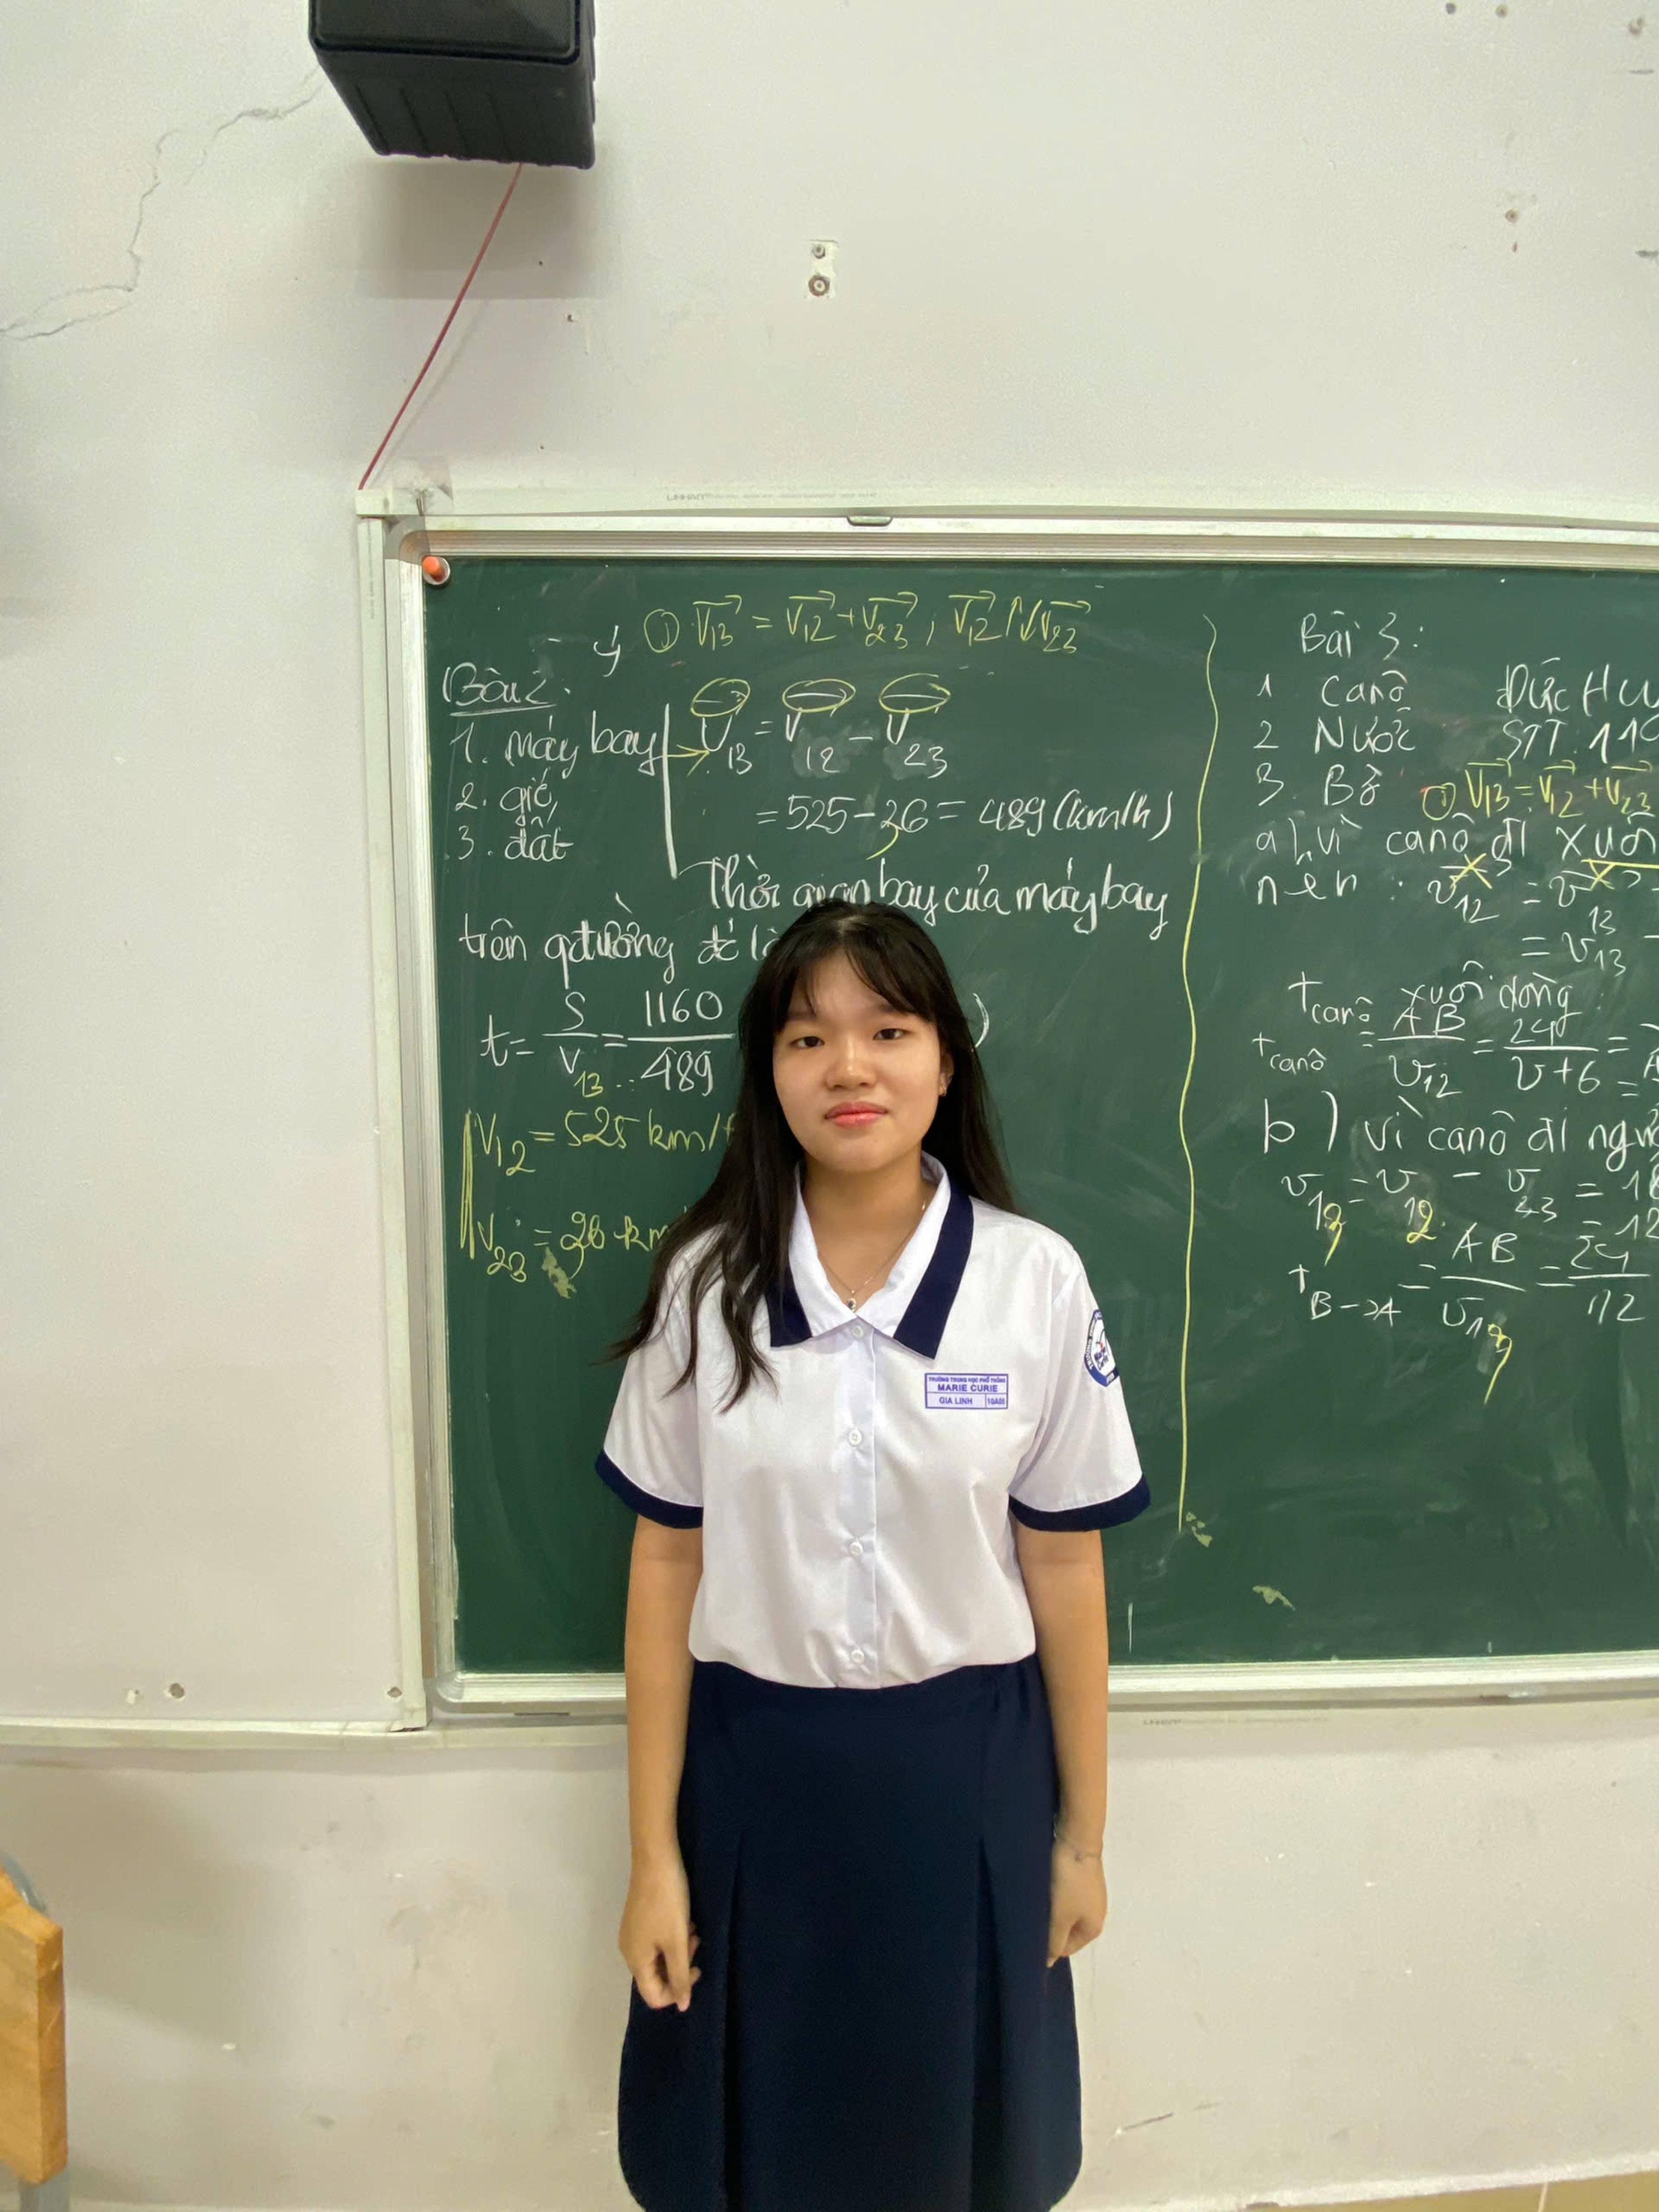 ý ① V₁₃ = V₁₂ + V₂₃ , V₁₂ ↑↓ V₂₃
Bài 2:
1. máy bay
2. gió
3. đất
V₁₃ = V₁₂ - V₂₃
= 525 - 36 = 489 (km/h)
Thời gian bay của máy bay
trên qđường đó là
t = S/V₁₃ = 1160/489
)
V₁₂ = 525 km/
V₂₃ = 36 km
Bài 3:
1 Canô
2 Nước
3 Bờ
Đức
STT.
① V₁₃ = V₁₂ + V₂₃
a) Vì canô đi xuôi
nên : v₁₂ = v₁₃ -
= v₁₃ -
t canô xuôi dòng
t canô = AB/v₁₂ = 24/v+6 =
b) Vì canô đi
v₁₃ = v₁₂ - v₂₃ = 18
= 12
t B→A = AB/v₁₃ = 24/12
TRƯỜNG TRUNG HỌC PHỔ THÔNG
MARIE CURIE
GIA LINH 10A05